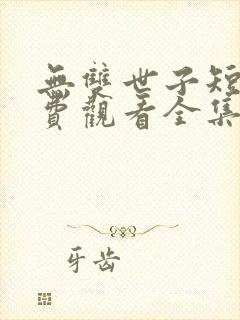 無雙世子短
費觀看全集
牙齿